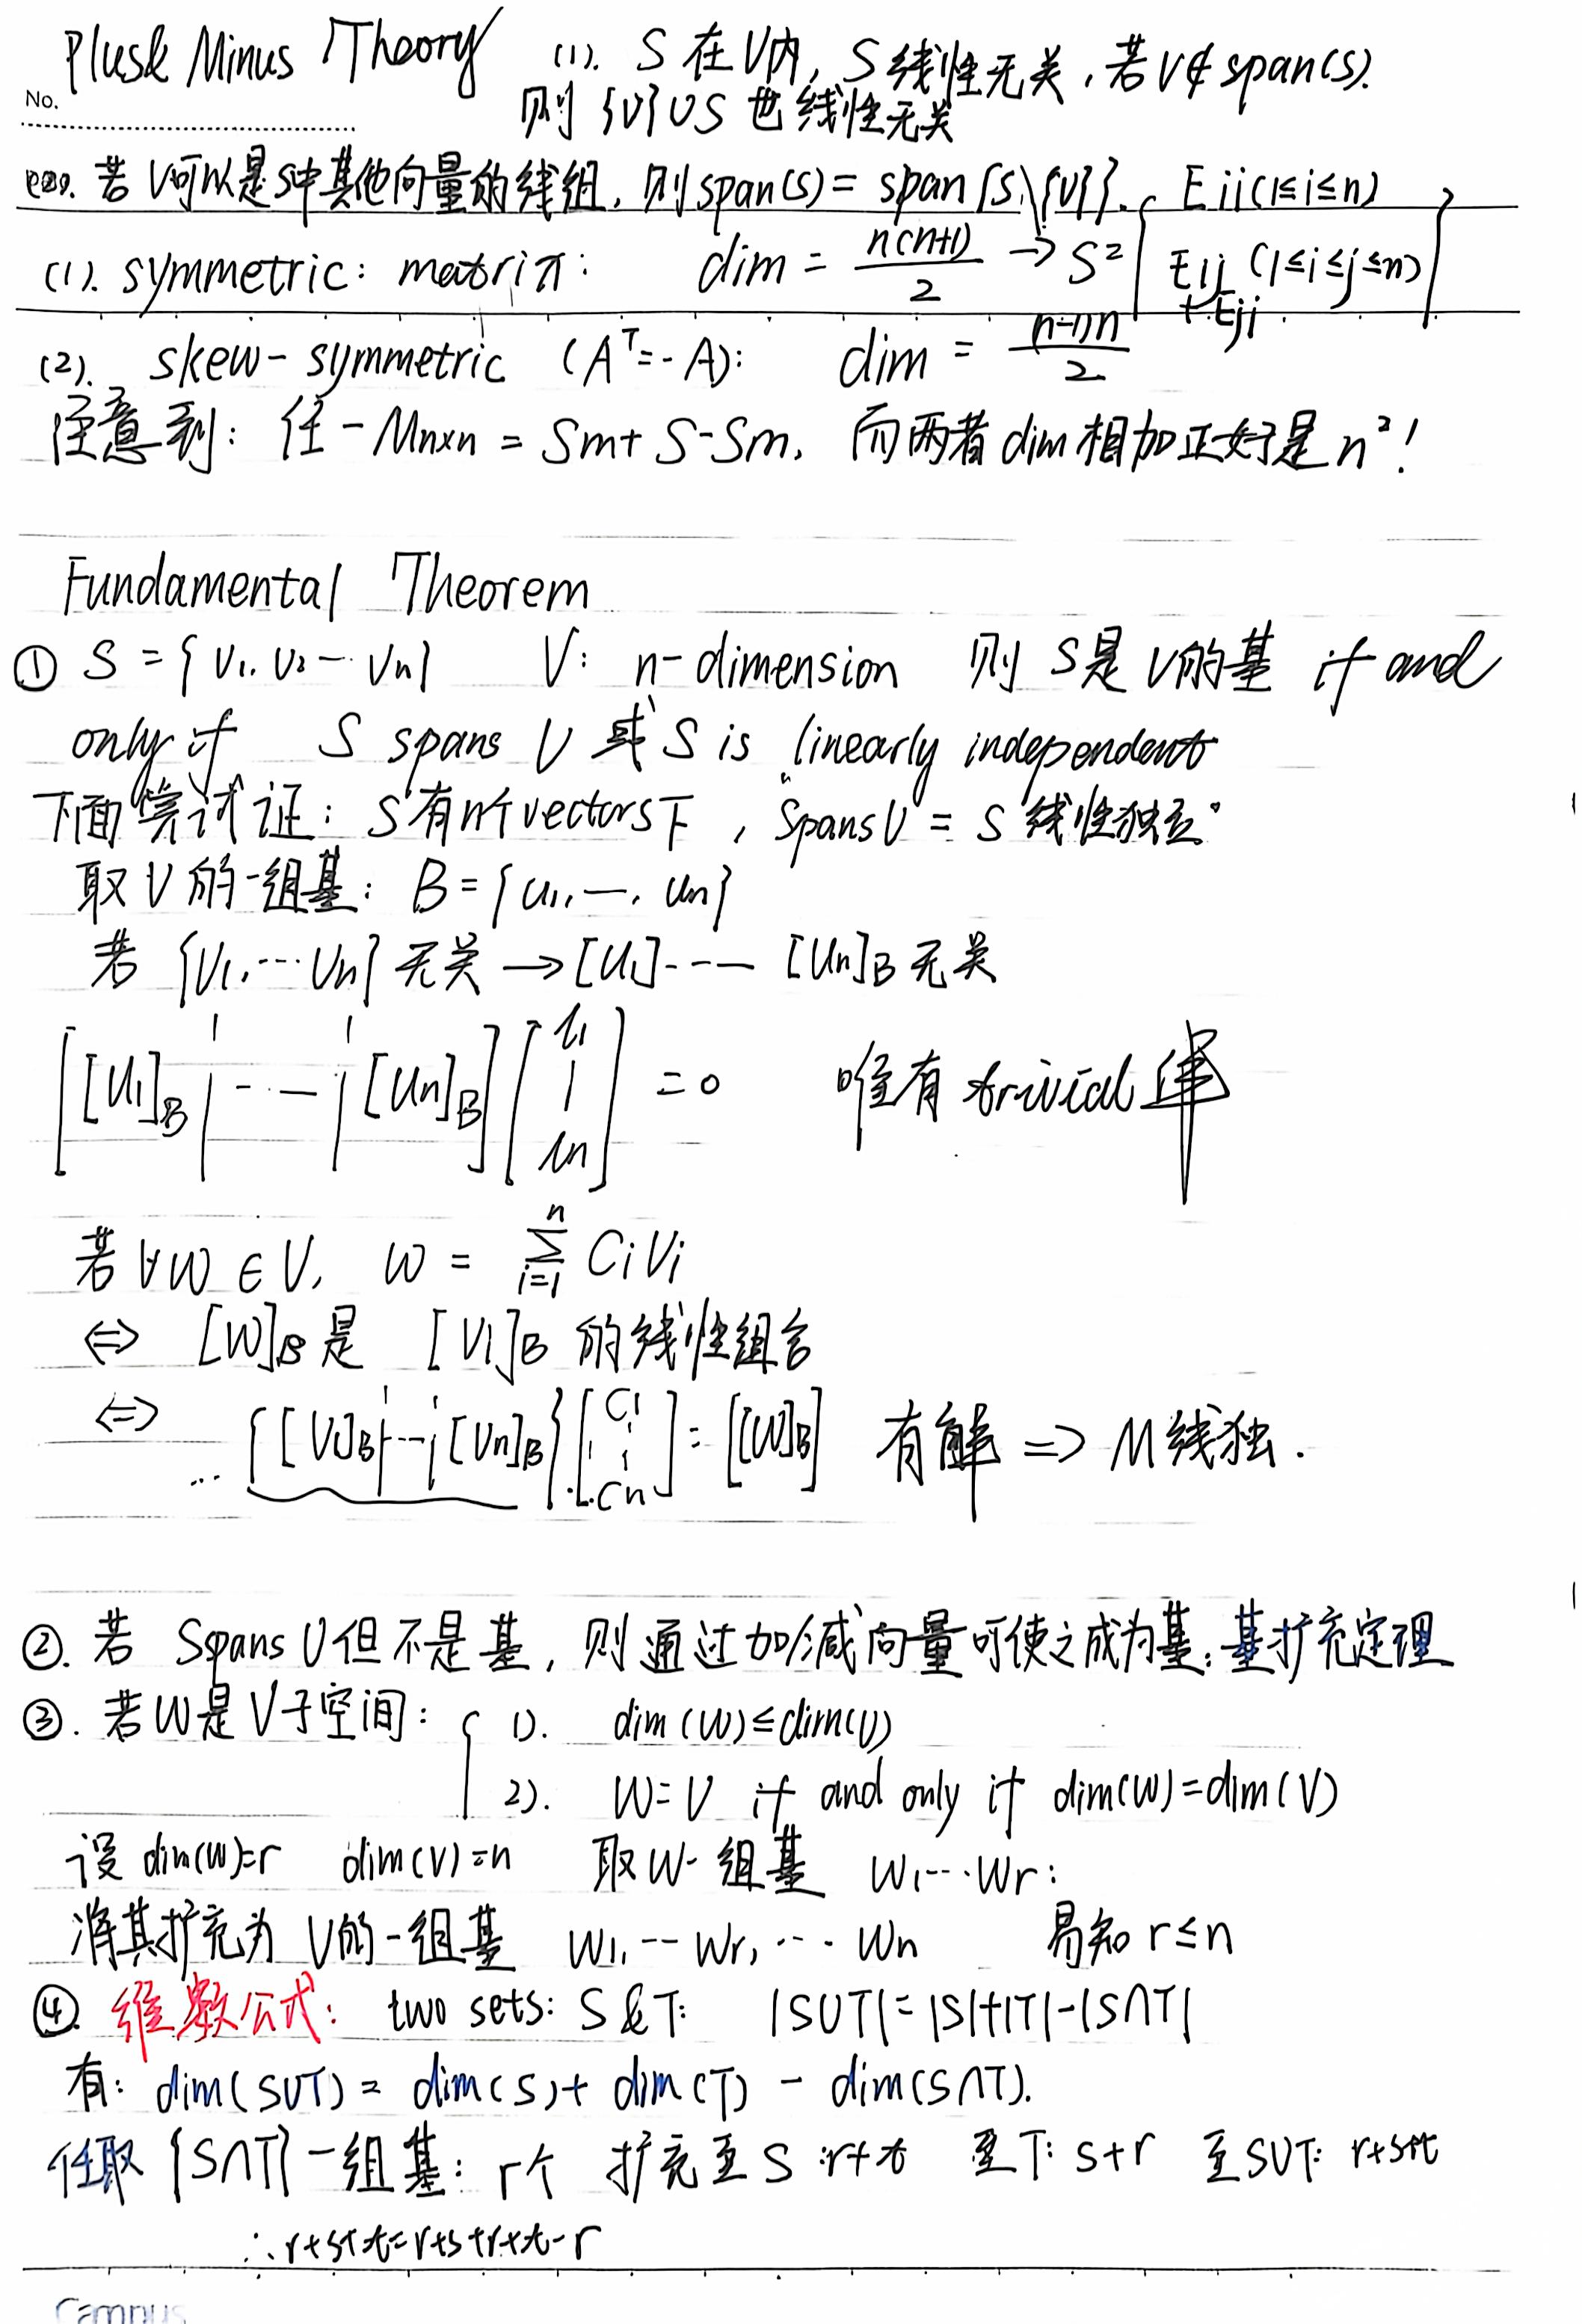 Plus & Minus Theory (1). S 在V内, S 线性无关, 若 V∉span(S).
No.
则 {V}∪S 也线性无关
若 V可以是S中其他向量的线组, 则span(S) = span{S\{V}}.
(1). symmetric: matrix: dim = n(n+1)/2 → S² { Eii(1≤i≤n) Eij + Eji (1≤i≤j≤n) }
(2). skew-symmetric (Aᵀ=-A): dim = (n-1)n/2
注意到: 任一 Mn×n = Sm + S-Sm, 而两者 dim 相加正好是 n²!
Fundamental Theorem
① S = {V1, V2 -- Vn} V: n-dimension 则 S是 V的基 if and
only if S spans V 或 S is linearly independent
下面尝试证: S有n个vectors下, "Spans V = S 线性独立"
取 V 的一组基: B = {u1, —, un}
若 {V1, ... Vn} 无关 → [U1] ---- [Un]B 无关
[ [U1]B | - - — | [Un]B ] [ l1 | ln ] = 0 唯有 trivial 解
若 ∀W ∈ V, W = Σ_{i=1}^{n} CiVi
⇔ [W]B 是 [V1]B 的线性组合
⇔ { [V1]B | -- | [Vn]B } [ C1 ⋮ Cn ] = [[W]B] 有解 ⇒ M 线独.
②. 若 S spans V 但不是基, 则通过加/减向量可使之成为基: 基扩充定理
③. 若 W是 V子空间: { 1). dim(W)≤dim(V)
2). W=V if and only if dim(W)=dim(V)
设 dim(W)=r dim(V)=n 取W一组基 W1...Wr:
将其扩充为 V的一组基 W1, -- Wr, ... Wn 易知 r≤n
④. 维数公式: two sets: S & T: |S∪T| = |S|+|T|-|S∩T|
有: dim(S∪T) = dim(S) + dim(T) - dim(S∩T).
任取 {S∩T} 一组基: r个 扩充至 S: r+t 至T: s+r 至S∪T: r+s+t
∴ r+s+t = r+s+r+t-r
Campus